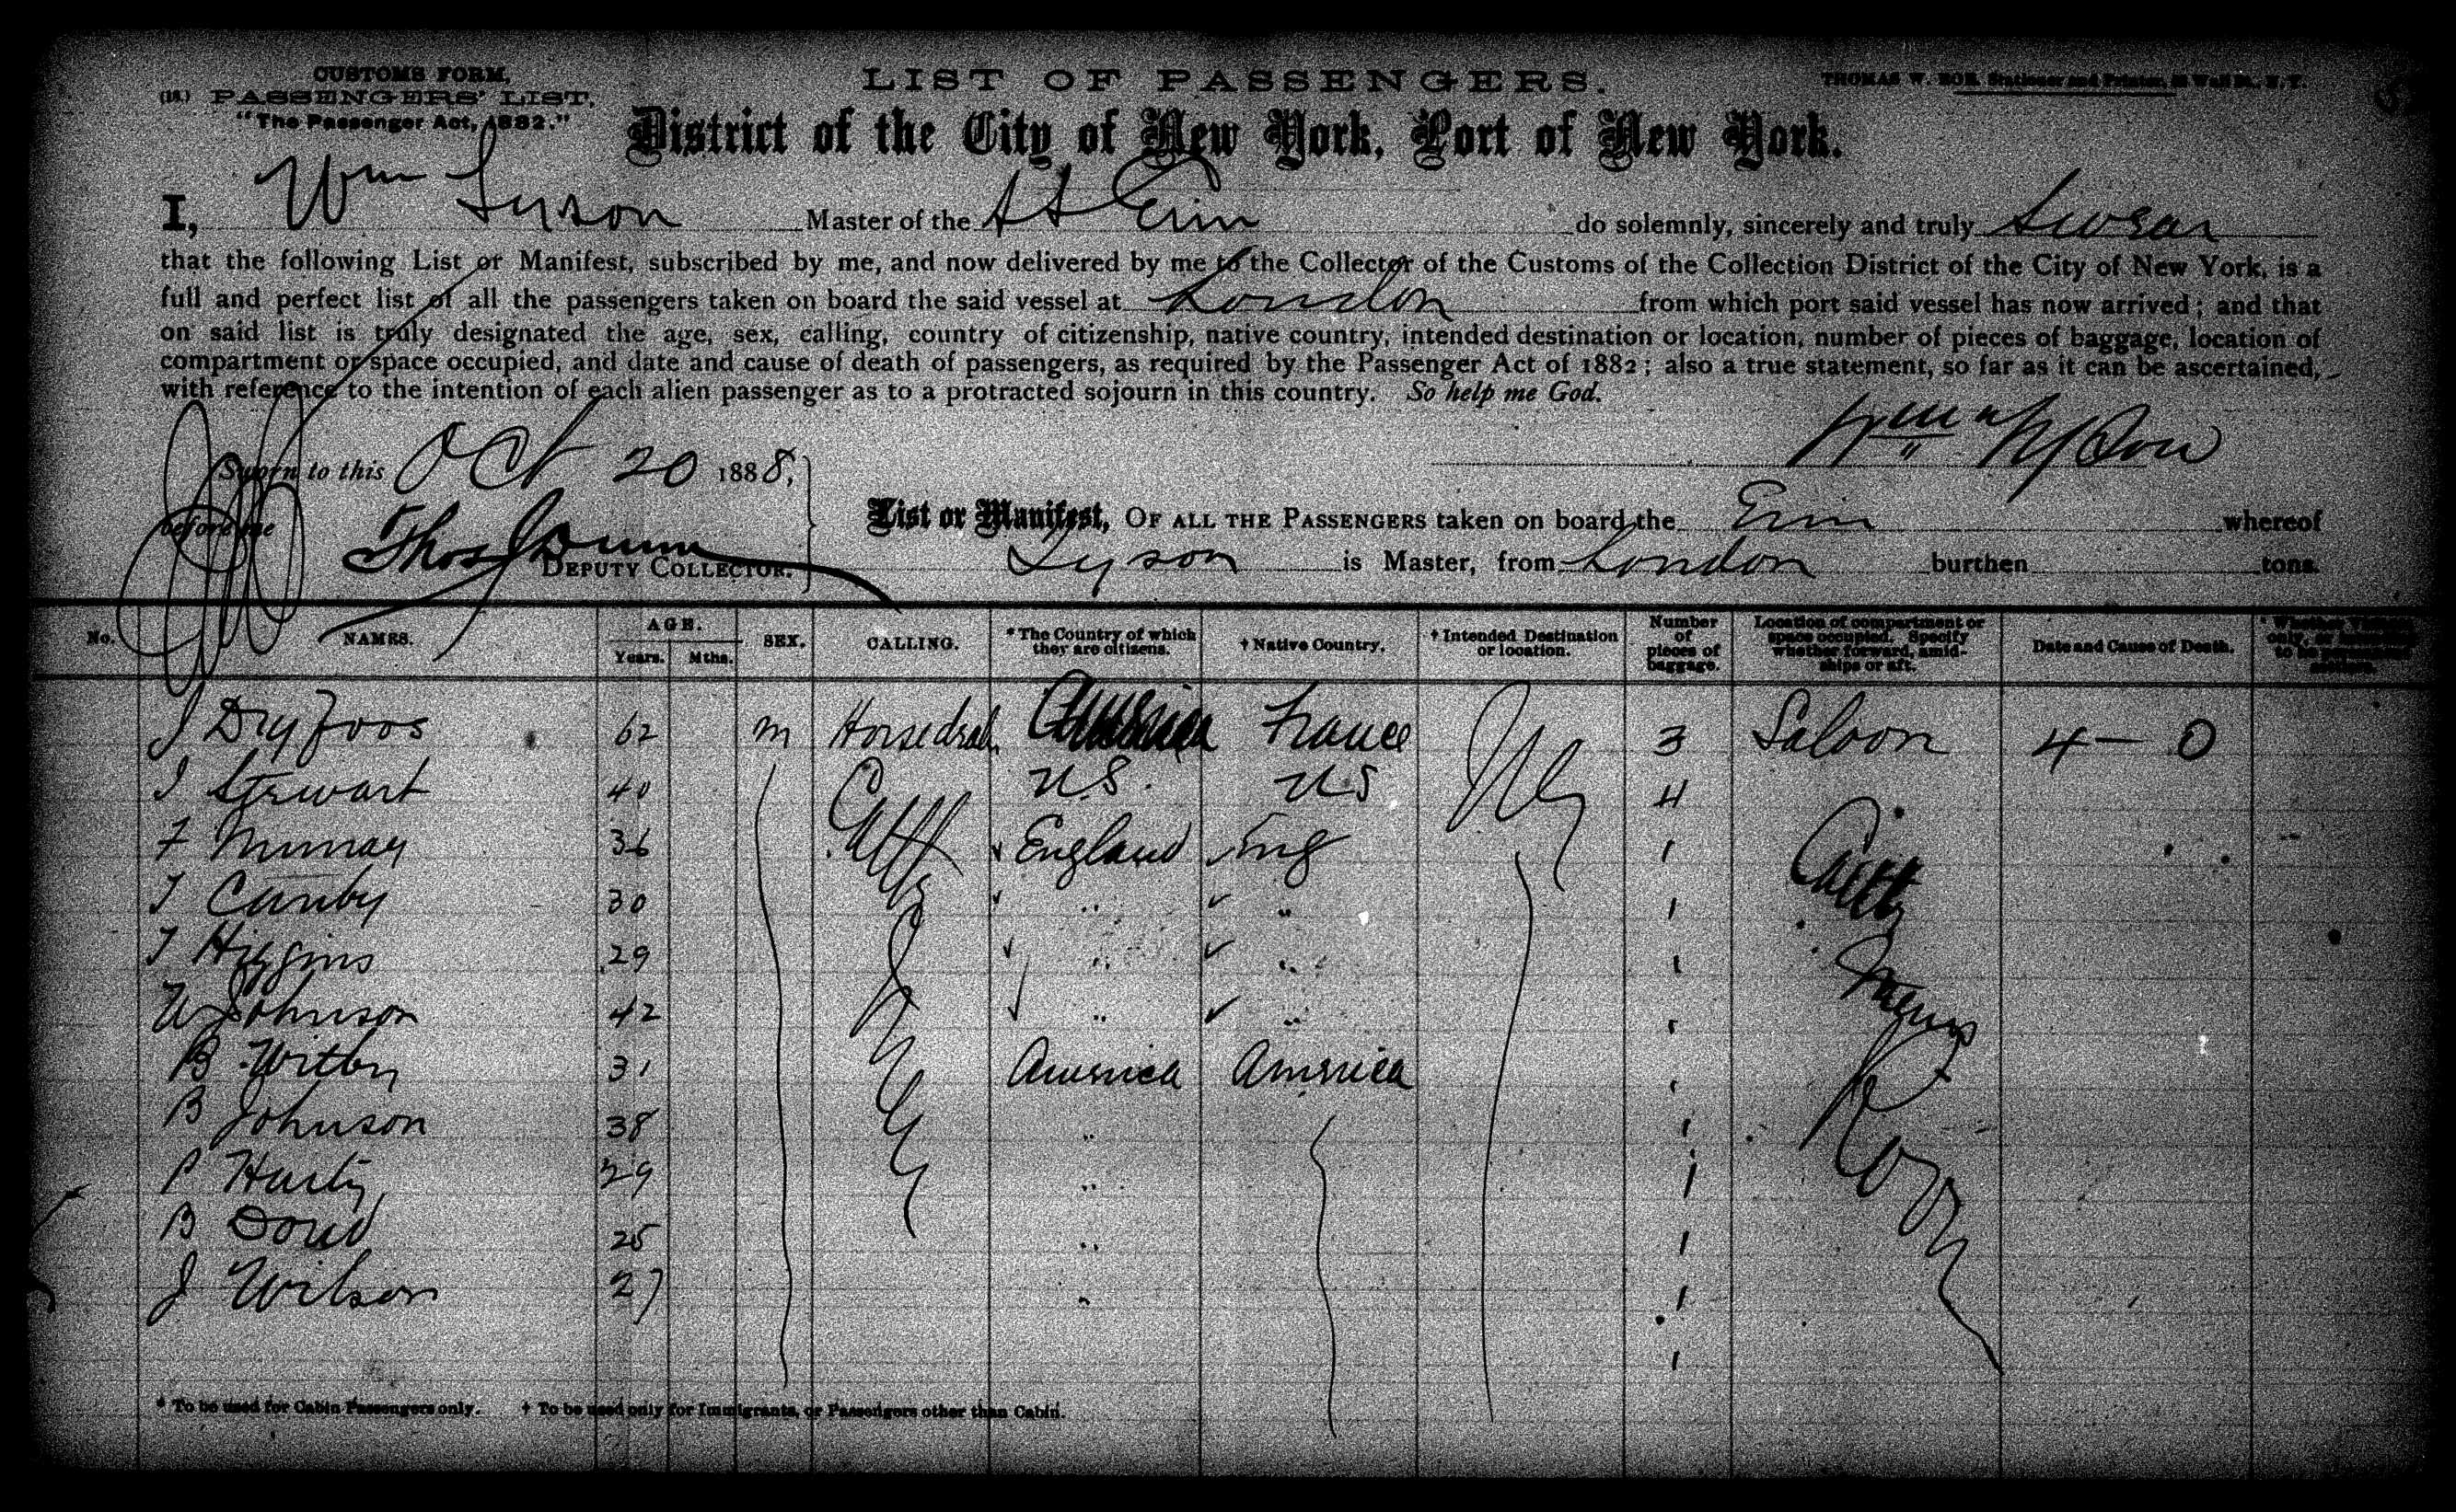 CUSTOMS FORM,
(18.) PASSENGERS' LIST,
"The Passenger Act, 1882."
LIST OF PASSENGERS.
THOMAS W. Stationer and Printer, Wall St., N.Y.
District of the City of New York, Port of New York.
I, Wm Tyson Master of the SS Erin do solemnly, sincerely and truly Swear
that the following List or Manifest, subscribed by me, and now delivered by me to the Collector of the Customs of the Collection District of the City of New York, is a
full and perfect list of all the passengers taken on board the said vessel at London from which port said vessel has now arrived; and that
on said list is truly designated the age, sex, calling, country of citizenship, native country, intended destination or location, number of pieces of baggage, location of
compartment or space occupied, and date and cause of death of passengers, as required by the Passenger Act of 1882; also a true statement, so far as it can be ascertained,
with reference to the intention of each alien passenger as to a protracted sojourn in this country. So help me God.
Wm Tyson
Sworn to this Oct 20 1888,
before me Thos Dunn
DEPUTY COLLECTOR.
List or Manifest, OF ALL THE PASSENGERS taken on board the Erin whereof
Tyson is Master, from London burthen tons.
No. NAMES. AGE. Years. Mths. SEX. CALLING. * The Country of which they are citizens. † Native Country. † Intended Destination or location. Number of pieces of baggage. Location of compartment or space occupied. Specify whether forward, amidships or aft. Date and Cause of Death.
J Dryfoos 62 m France NY 3 Saloon 4 — 0
J Stewart 40 U.S. US 4
F Murray 36 England Eng 1
T Canby 30 " " 1
T Higgins 29 " " 1
W Johnson 42 " " 1
B Witby 31 America America 1
B Johnson 38 " 1
P 29 " 1
B 25 " 1
J Wilson 27 " 1
1
* To be used for Cabin Passengers only. † To be used only for Immigrants, or Passengers other than Cabin.